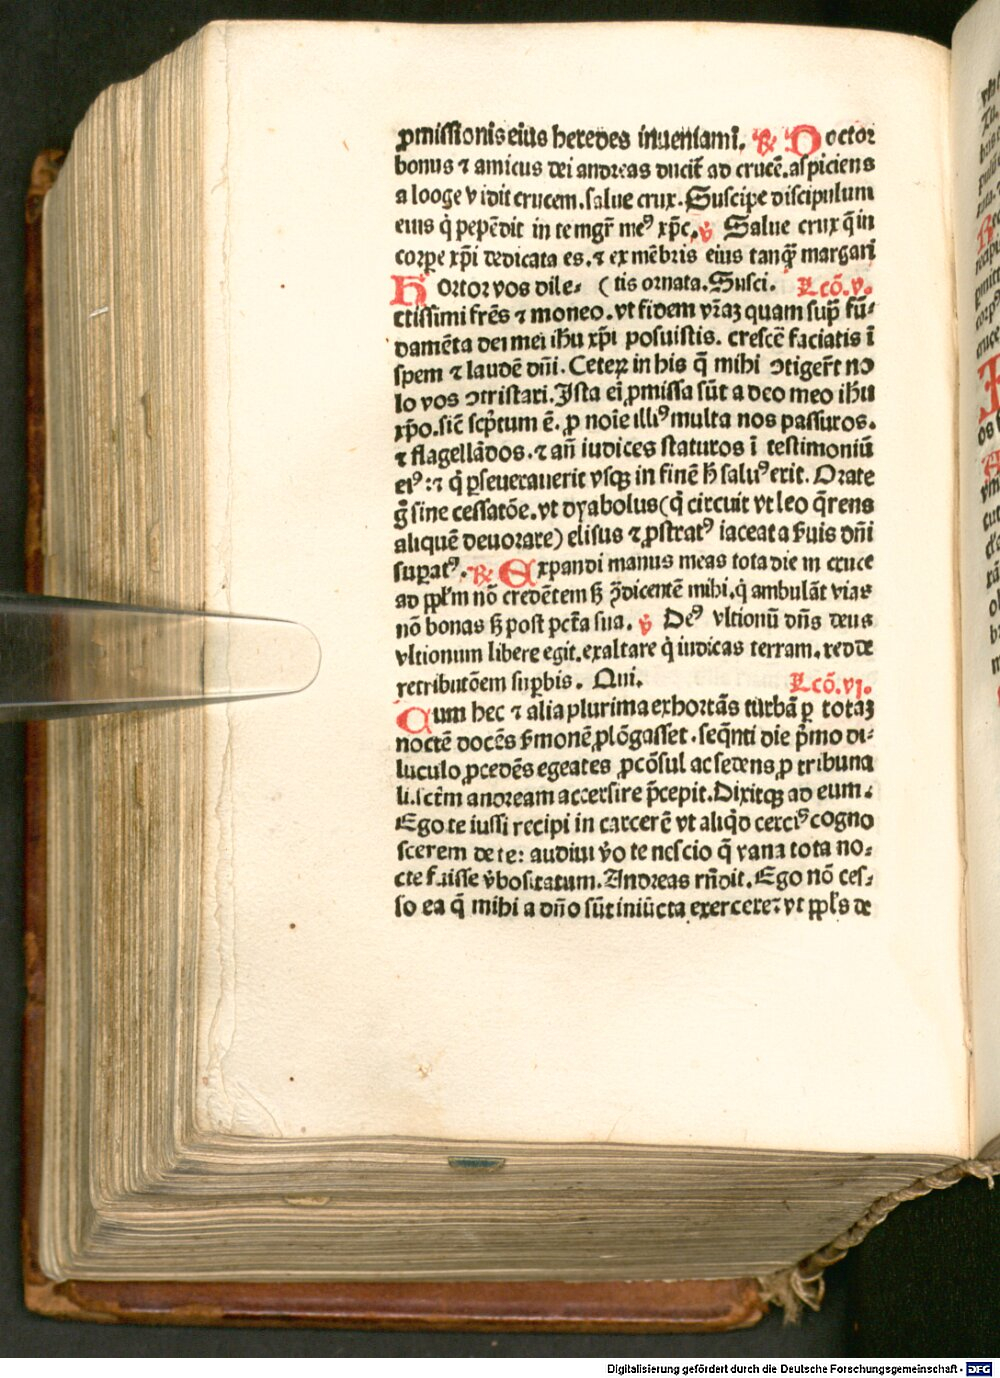 ꝓmissionis eius heredes inueniamꝉ. ℟ Doctor
bonus ⁊ amicus dei andreas ducit̄ ad crucē. aspiciens
a looge vidit crucem. salue crux. Suscipe discipulum
eius q̇ pepēdit in te mgr̄ meꝰ xp̄c. ℣ Salue crux q̄ in
corpe xp̄i dedicata es. ⁊ ex mēbris eius tanq̄ꝫ margari
Hortor vos dile⸗ (tis ornata. Susci. Lcō. v.
ctissimi fr̄es ⁊ moneo. vt fidem vr̄aꝫ quam sup̄ fū⸗
damēta dei mei ih̄u xp̄i posuistis. crescē faciatis ī
spem ⁊ laudē dn̄i. Ceteꝝ in his q̄ mihi ꝯtiger̄t no
lo vos ꝯtristari. Ista ei ꝓmissa sūt a deo meo ih̄u
xp̄o. sic̄ scp̄tum ē. ꝑ noīe illiꝰ multa nos passuros.
⁊ flagellādos. ⁊ an̄ iudices staturos ī testimoniū
eiꝰ: ⁊ q̇ ꝑseuerauerit vsqꝫ in finē h̄ saluꝰ erit. Orate
g̊ sine cessatōe. vt dyabolus (q̇ circuit vt leo q̄rens
aliquē deuorare) elisus ⁊ ꝓstratꝰ iaceat a ẜuis dn̄i
suꝑatꝰ. ℟ Expandi manus meas tota die in cruce
ad ppl̄m nō credētem sꝫ ꝯ̄dicentē mihi. q̇ ambulāt vias
nō bonas sꝫ post pctā sua. ℣ Deꝰ vltionū dn̄s deus
vltionum libere egit. exaltare q̇ iudicas terram. redde
retributōem suꝑbis. Qui. Lcō. vj.
Cum hec ⁊ alia plurima exhortās turbā ꝑ totaꝫ
noctē docēs ẜmonē ꝓlōgasset. seq̄nti die p̄mo di⸗
luculo ꝓcedēs egeates ꝓcōsul ac sedens ꝓ tribuna
li. sctm̄ andream accersire p̄cepit. Dixitqꝫ ad eum.
Ego te iussi recipi in carcerē vt aliq̇d cerciꝰ cogno
scerem de te: audiui v̊o te nescio q̄ vana tota no⸗
cte fuisse v̊bositatum. Andreas rn̄dit. Ego nō ces⸗
so ea q̄ mihi a dn̄o sūt iniūcta exercere: vt ppl̄s de
Digitalisierung gefördert durch die Deutsche Forschungsgemeinschaft - DFG